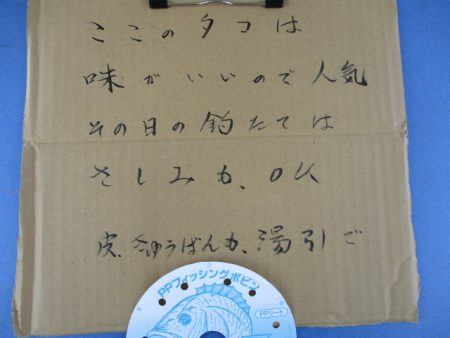 ここのタコは
味がいいので人気
その日の釣たては
さしみも、OK
皮、きゅうばんも、湯引ご
PPフィッシングボビン
PPシート